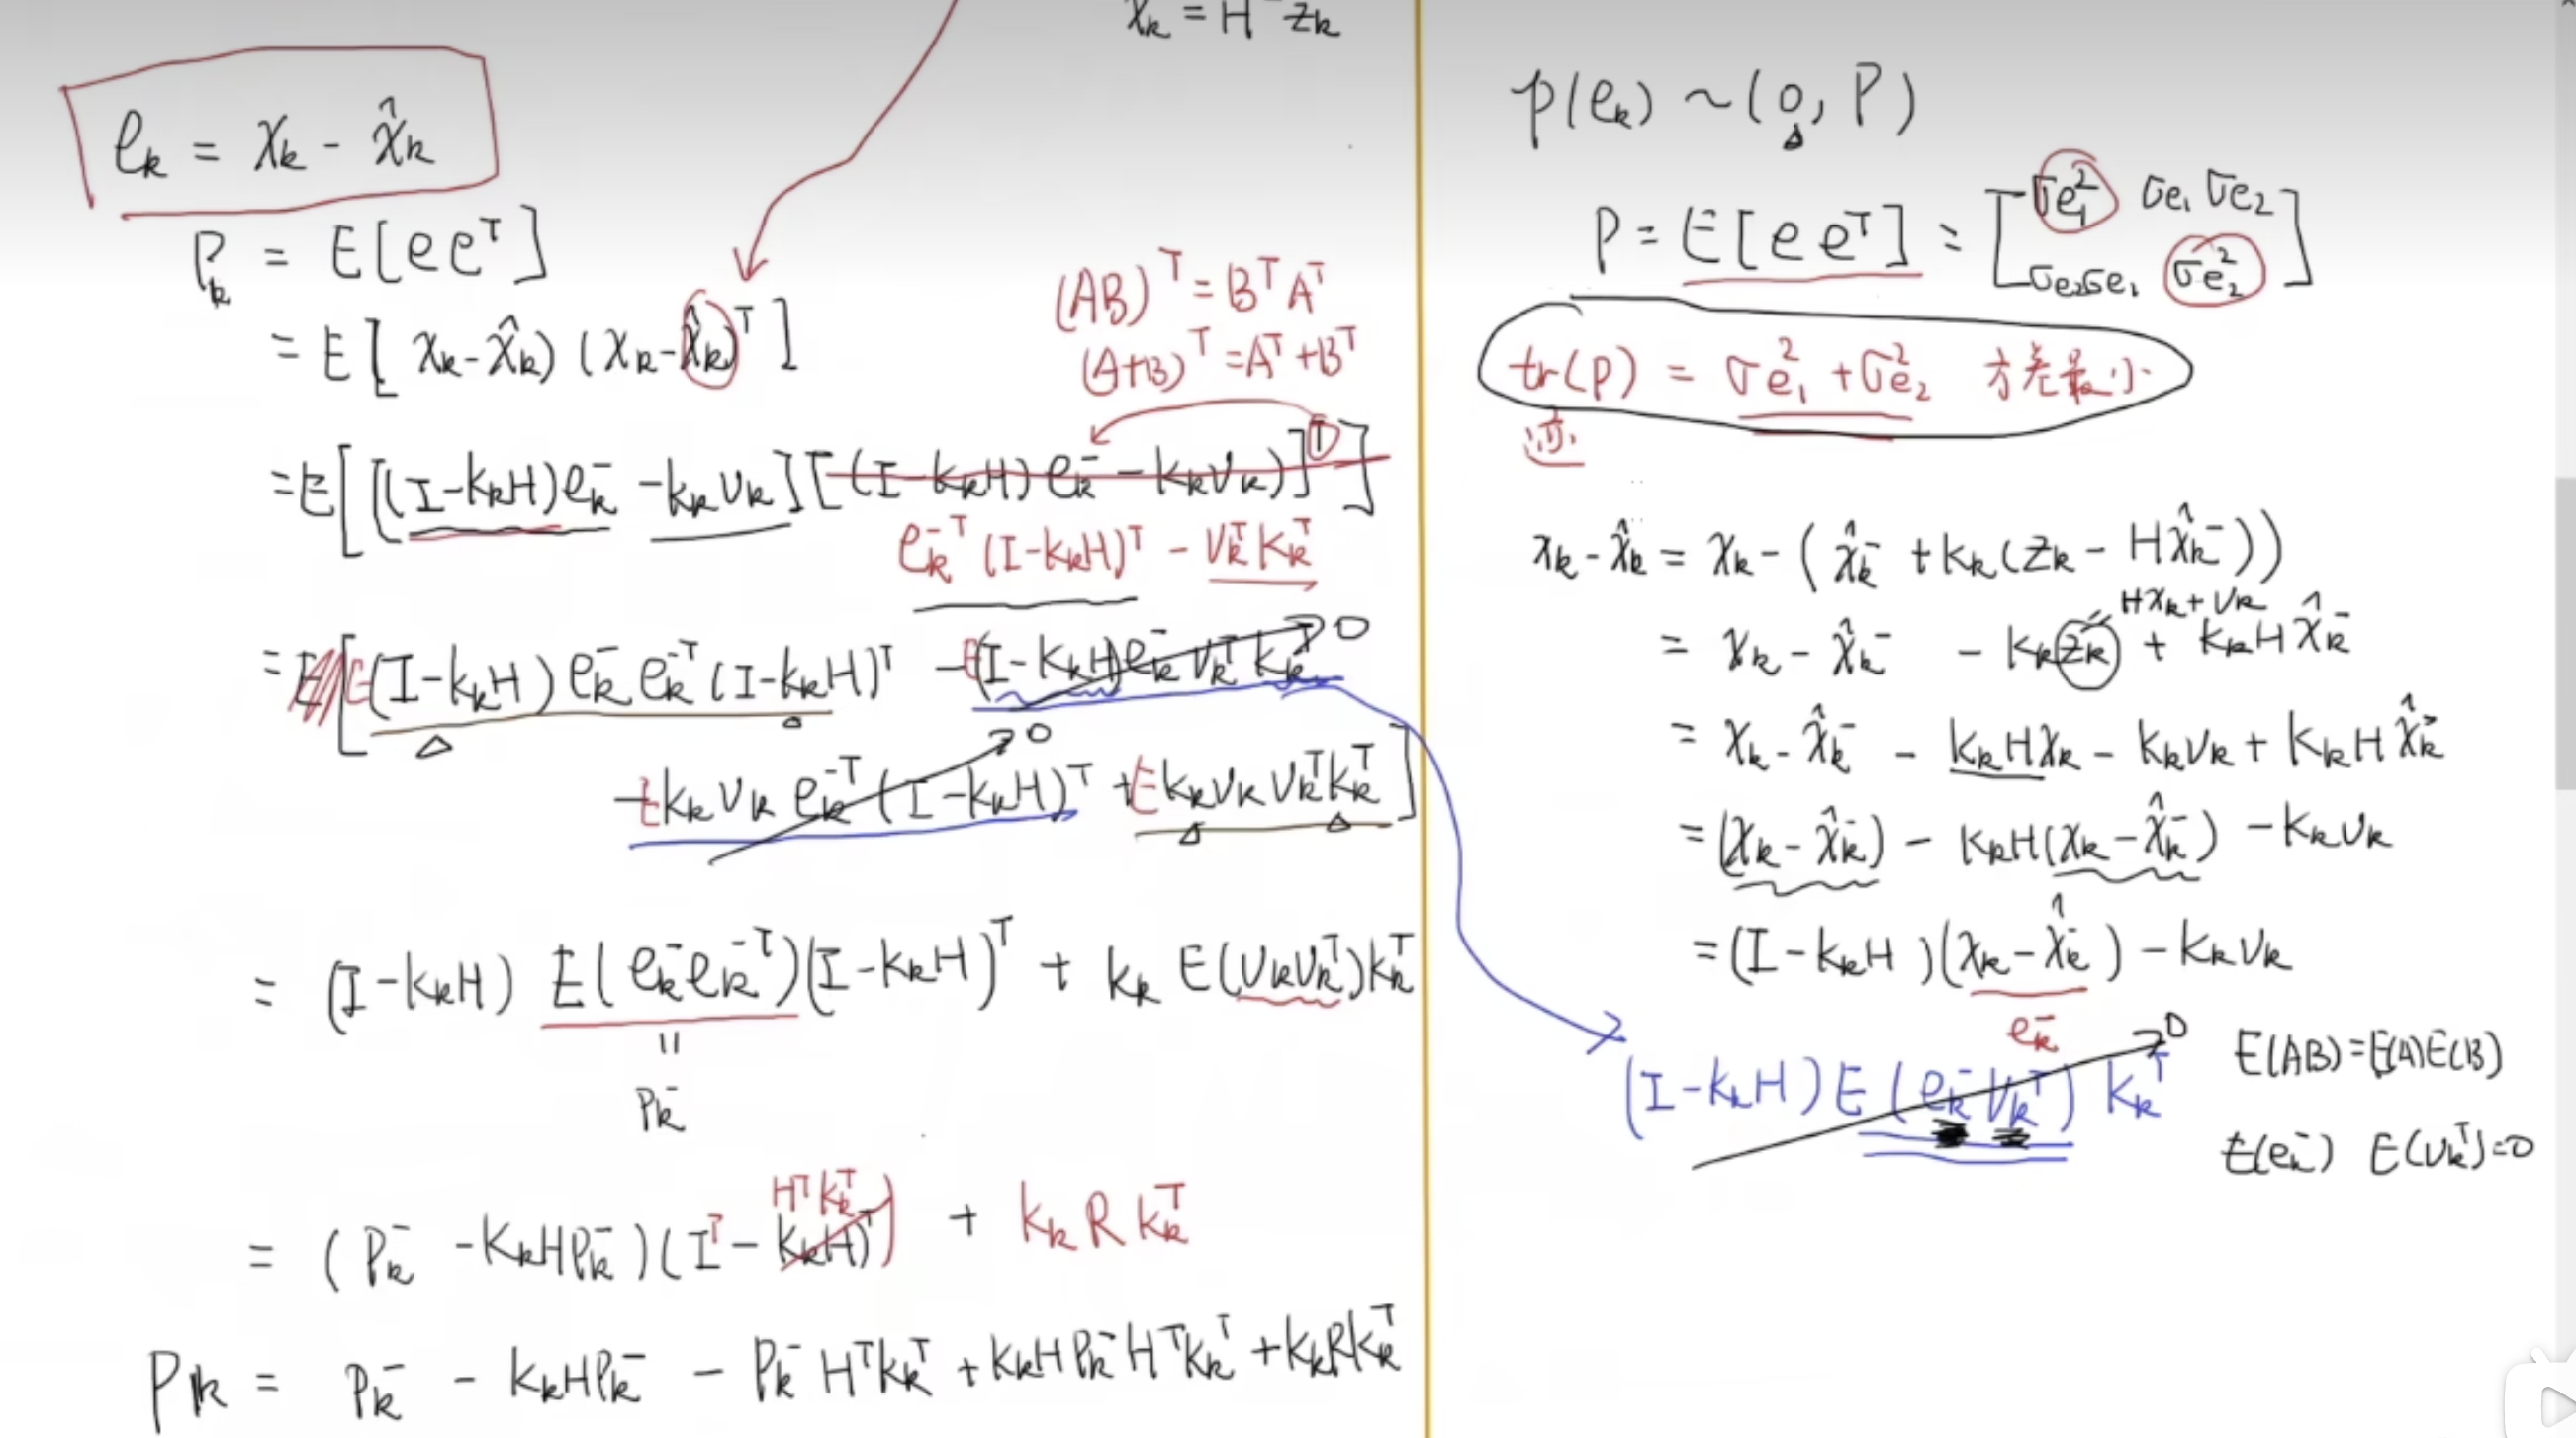 x̂ₖ = H⁻ zₖ
eₖ = xₖ - x̂ₖ
Pₖ = E[e eᵀ]
= E[ xₖ - x̂ₖ) (xₖ - x̂ₖ)ᵀ ]
(AB)ᵀ = Bᵀ Aᵀ
(A+B)ᵀ = Aᵀ + Bᵀ
= E[[(I - kₖH)eₖ⁻ - kₖvₖ][(I - kₖH)eₖ⁻ - kₖvₖ)]ᵀ]
eₖ⁻ᵀ (I - kₖH)ᵀ - vₖᵀ kₖᵀ
= E[E(I - kₖH) eₖ⁻ eₖ⁻ᵀ (I - kₖH)ᵀ - E(I - kₖH)eₖ⁻ vₖᵀ kₖᵀ → 0
- E kₖ vₖ eₖ⁻ᵀ (I - kₖH)ᵀ → 0 + E kₖ vₖ vₖᵀ kₖᵀ]
= (I - kₖH) E(eₖ⁻ eₖ⁻ᵀ)(I - kₖH)ᵀ + kₖ E(vₖ vₖᵀ)kₖᵀ
=
Pₖ⁻
Hᵀ kₖᵀ
= (Pₖ⁻ - kₖHPₖ⁻)(Iᵀ - kₖH)ᵀ) + kₖ R kₖᵀ
Pₖ = Pₖ⁻ - kₖHPₖ⁻ - Pₖ⁻ Hᵀkₖᵀ + kₖHPₖ⁻Hᵀkₖᵀ + kₖRkₖᵀ
p(eₖ) ~ (0, P)
P = E[e eᵀ] = [σe₁² σe₁ σe₂
σe₂σe₁ σe₂²]
tr(P) = σe₁² + σe₂² 方差最小
迹
xₖ - x̂ₖ = xₖ - (x̂ₖ⁻ + kₖ(zₖ - Hx̂ₖ⁻))
Hxₖ + vₖ
= xₖ - x̂ₖ⁻ - kₖzₖ + kₖHx̂ₖ⁻
= xₖ - x̂ₖ⁻ - kₖHxₖ - kₖvₖ + kₖHx̂ₖ⁻
= (xₖ - x̂ₖ⁻) - kₖH(xₖ - x̂ₖ⁻) - kₖvₖ
= (I - kₖH)(xₖ - x̂ₖ⁻) - kₖvₖ
eₖ⁻
(I - kₖH) E(eₖ⁻ vₖᵀ) kₖᵀ → 0
E(AB) = E(A)E(B)
E(eₖ⁻) E(vₖᵀ) = 0